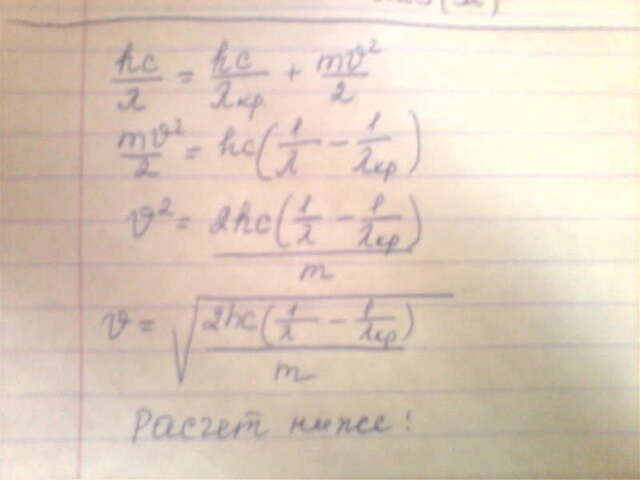 hc/λ = hc/λкр + mυ²/2
mυ²/2 = hc(1/λ − 1/λкр)
υ² = 2hc(1/λ − 1/λкр)/m
υ = √(2hc(1/λ − 1/λкр)/m)
Расчет ниже!